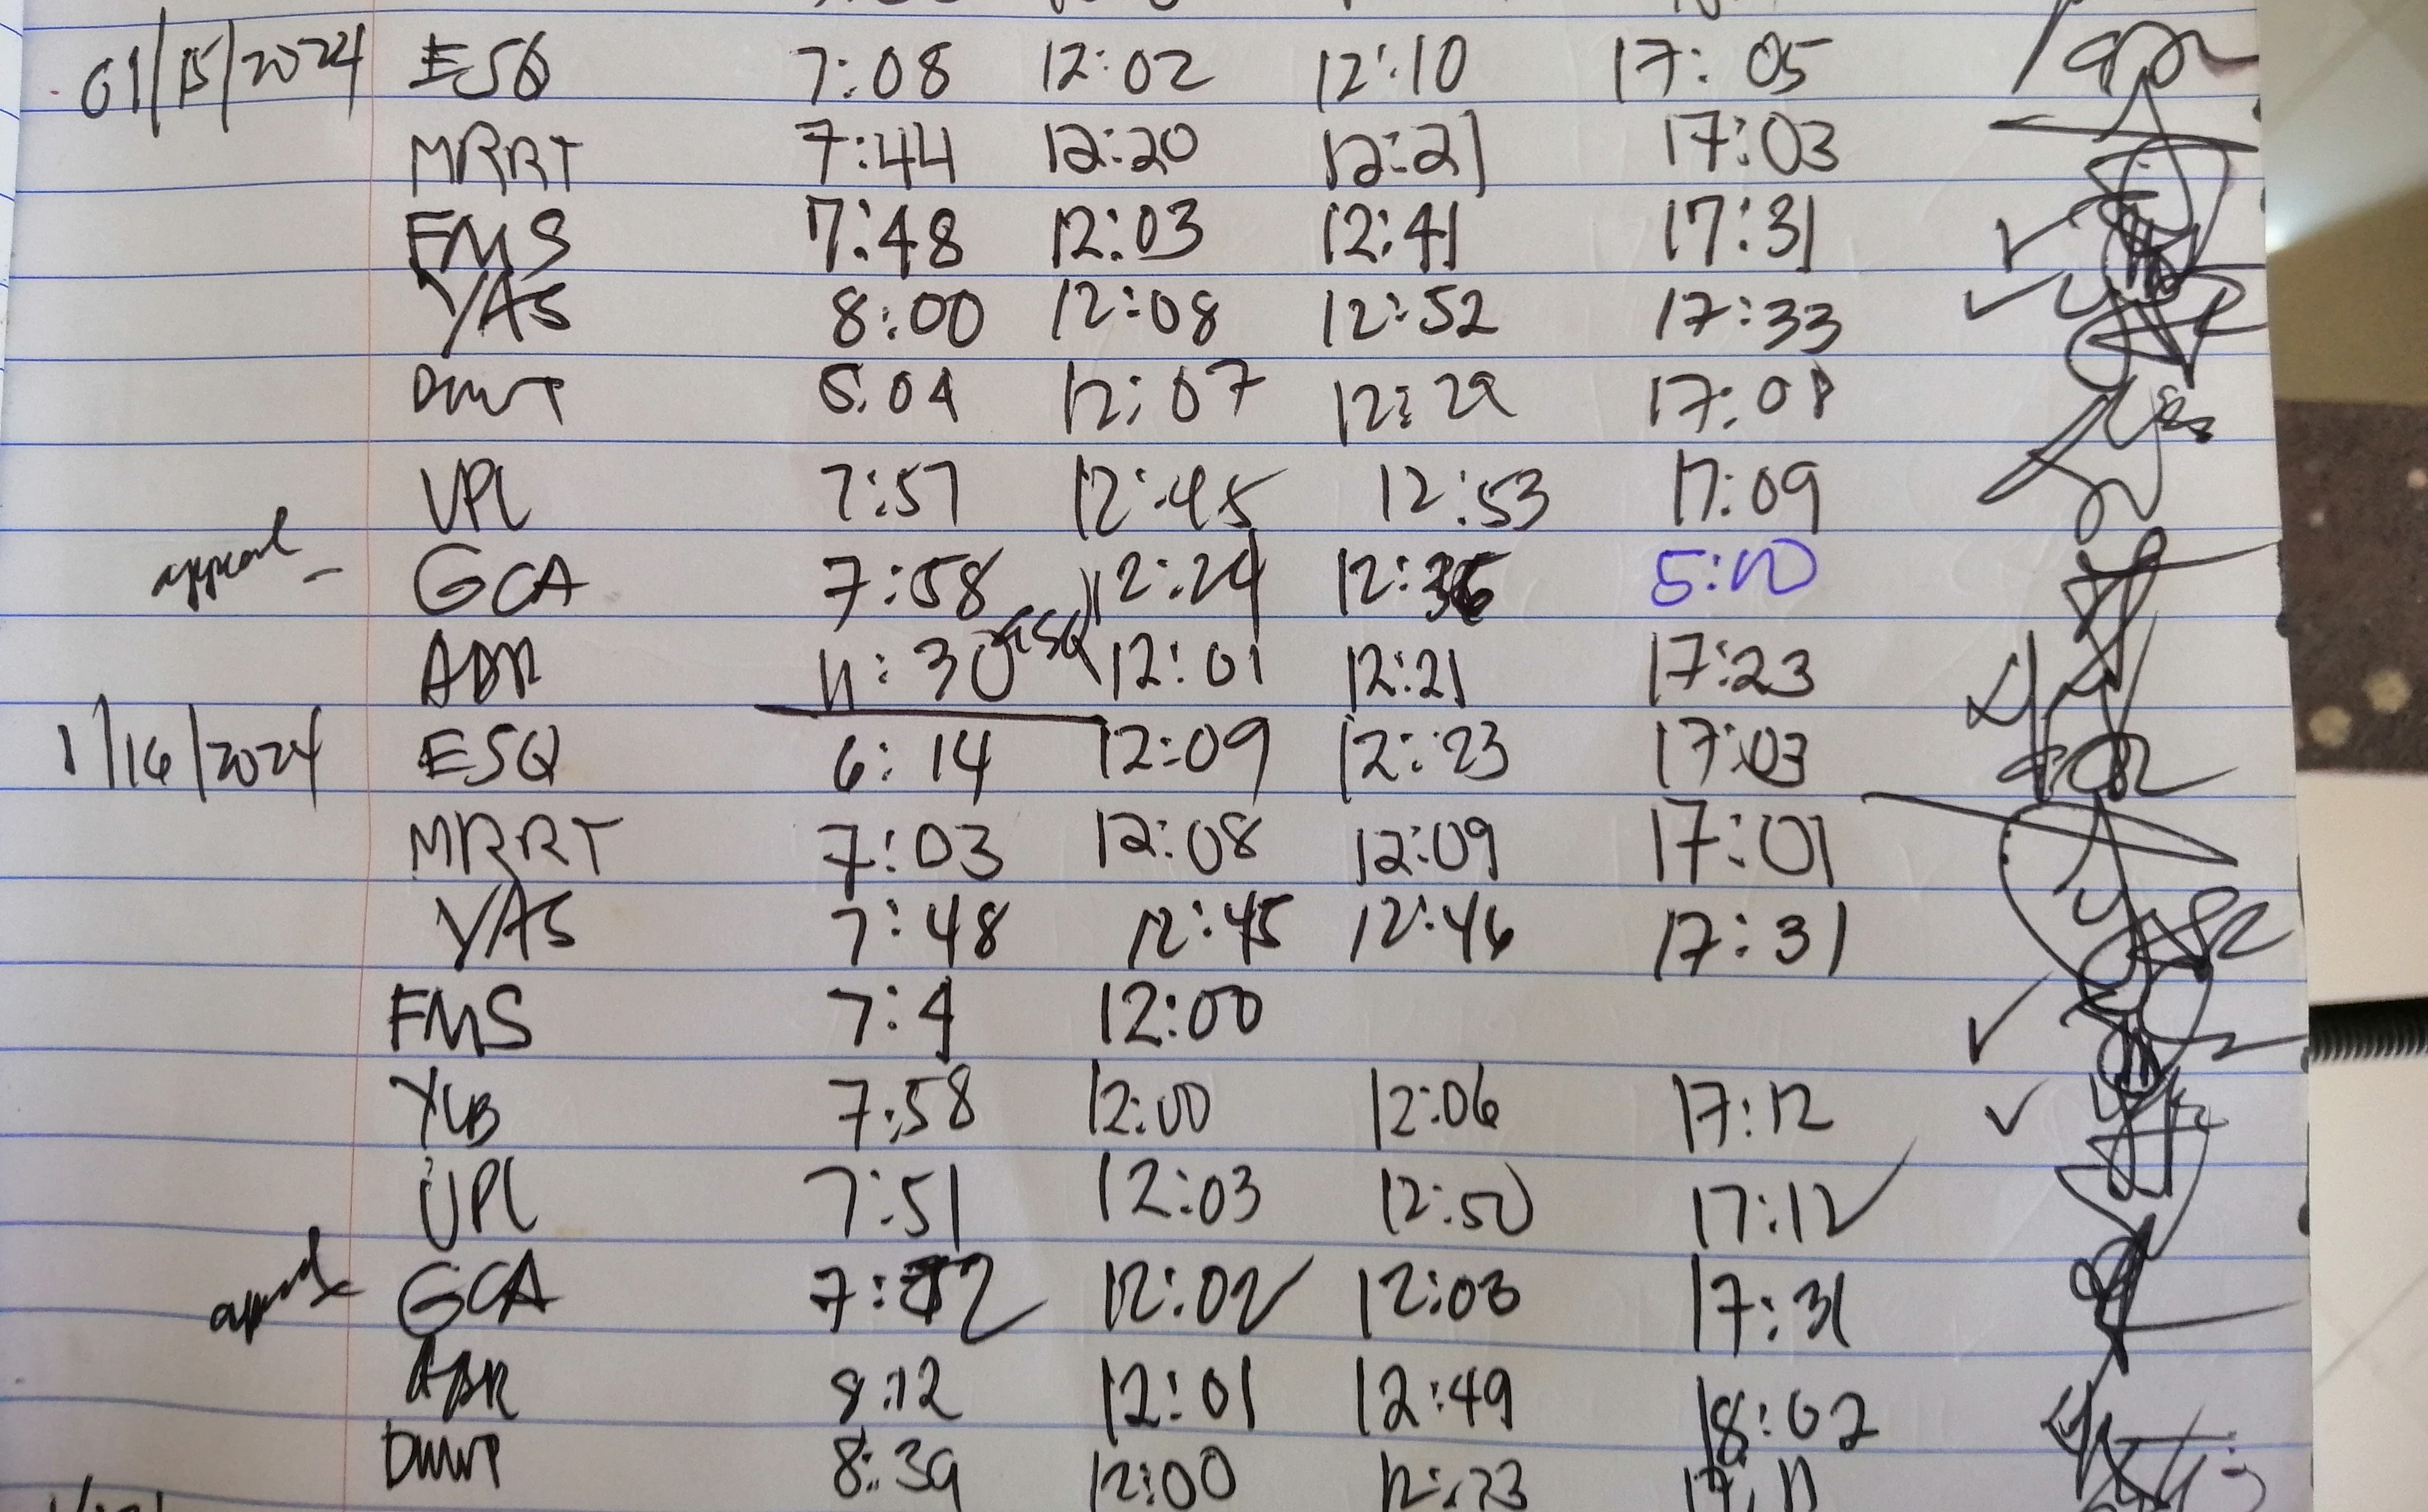 01/15/2024 ESQ 7:08 12:02 12:10 17:05
MRRT 7:44 12:20 12:21 17:03
FMS 7:48 12:03 12:41 17:31
YAS 8:00 12:08 12:52 17:33
12:07 12:29
VPL 7:57 12:45 12:53 17:09
GCA 7:58 12:24 12:36 5:10
ADR 11:30 ESQ 12:01 12:21 17:23
1/16/2024 ESQ 6:14 12:09 12:23 17:03
MRRT 7:03 12:08 12:09 17:01
YAS 7:48 12:45 12:46 17:31
FMS 7:4 12:00
YLB 7:58 12:00 12:06 17:12
VPL 7:51 12:03 12:50 17:12
GCA 12:02 12:03 17:31
ADR 8:12 12:01 12:49 18:02
8:39 12:00